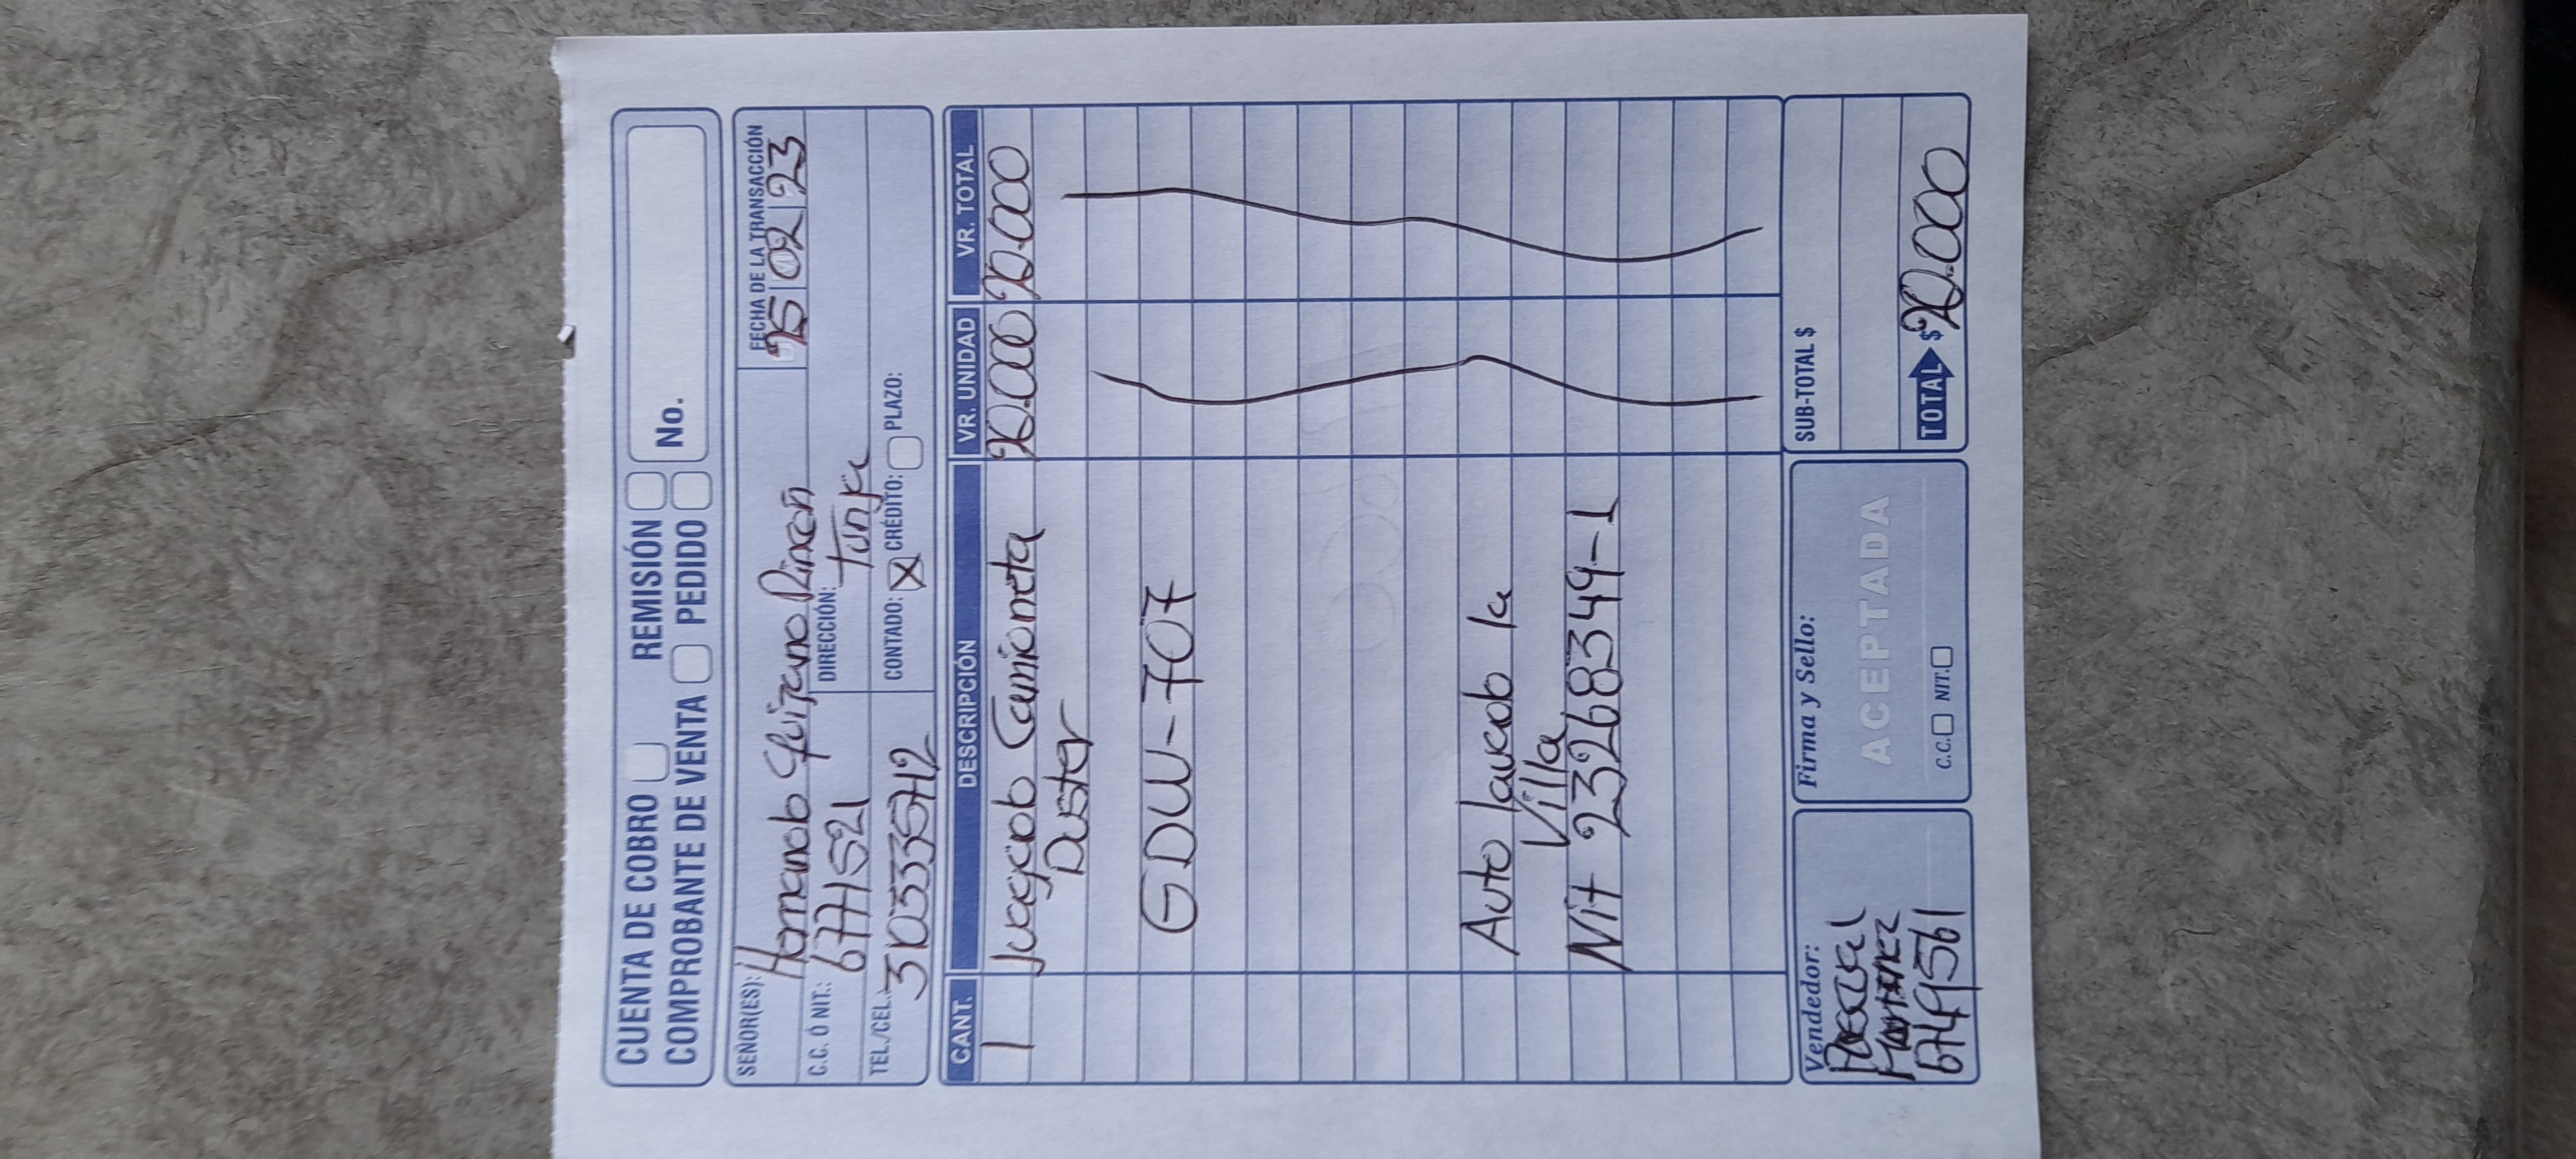 CUENTA DE COBRO REMISIÓN
COMPROBANTE DE VENTA PEDIDO No.
SEÑOR(ES): Hernando Quijano Rincón
FECHA DE LA TRANSACCIÓN
25 02 23
C.C. Ó NIT.: 6771521 DIRECCIÓN: Tunja
TEL./CEL.: 3103335712 CONTADO: X CRÉDITO: PLAZO:
CANT. DESCRIPCIÓN VR. UNIDAD VR. TOTAL
1 Camioneta 20.000 20.000
Duster
GDW-707
Auto lavado la
Villa
Nit 23268349-1
Vendedor: Firma y Sello: SUB-TOTAL $
Pascual
Martinez
6749561
ACEPTADA
C.C. NIT.
TOTAL $ 20.000